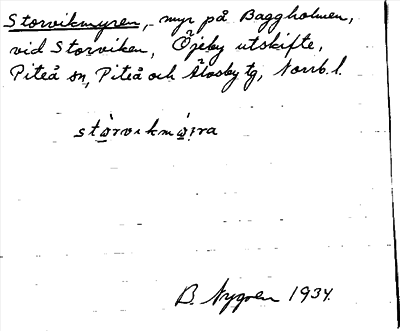 Storvikmyren, myr på Baggholmen,
vid Storviken, Öjeby utskifte,
Piteå sn, Piteå och Älvsby tg, Norrb. l.
stòrvikmø̀i̯ra
B. Nygren 1934.